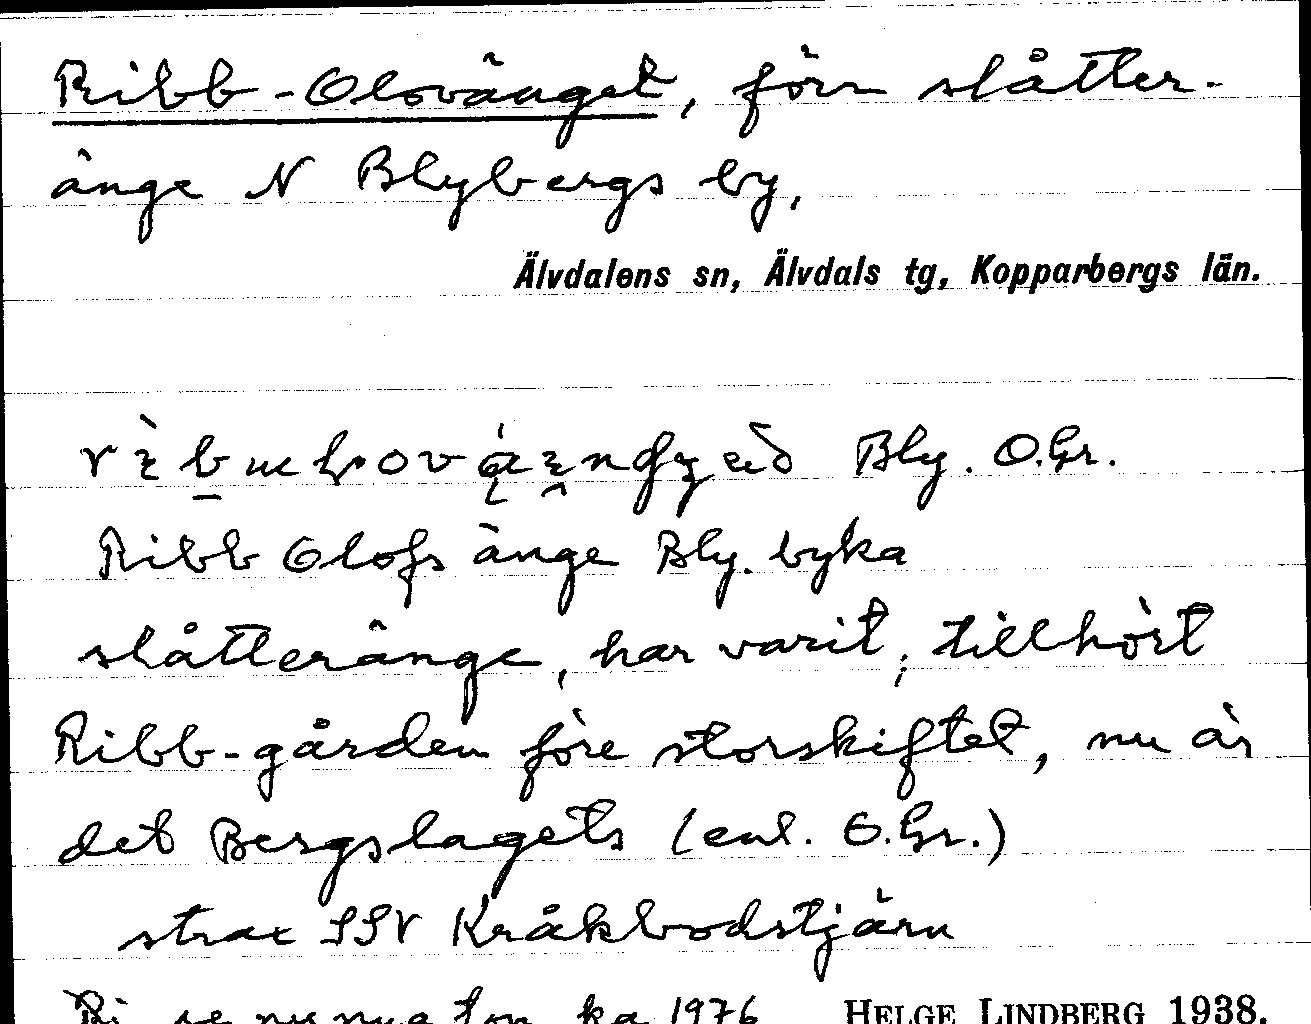 Ribb-Olovänget, förr slåtter-
änge N Blybergs by,
Älvdalens sn, Älvdals tg, Kopparbergs län.
Bly. O.Gr.
Ribb Olofs änge Bly. byka
slåtteränge, har varit; tillhört
Ribb-gården före storskiftet, nu är
det Bergslagets (enl. O.Gr.)
strax SSV Kråkbodstjärn
Ri se ny nya ton ka 1976 HELGE LINDBERG 1938.